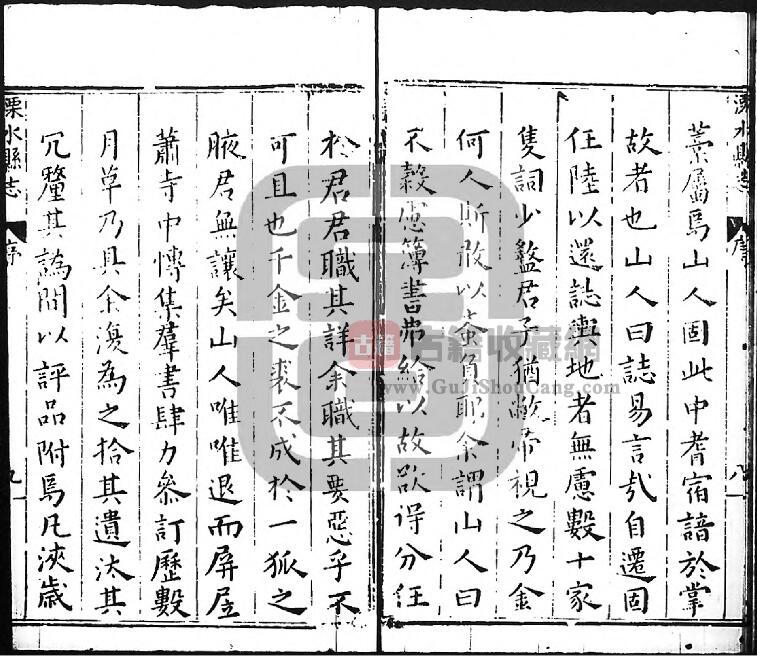 溧水縣志 序 八
藁屬焉山人固此中耆宿諳於掌
故者也山人曰誌易言哉自遷固
任陸以還誌輿地者無慮數十家
隻詞少盭君子猶敝帚視之乃金
何人斯敢以蚉負耶余謂山人曰
不穀慮簿書弗給以故欲得分任
於君君職其詳余職其要惡乎不
可且也千金之裘不成於一狐之
腋君無讓矣山人唯唯退而屏居
蕭寺中慱集羣書肆力叅訂歷數
月草乃具余復為之拾其遺汰其
冗釐其譌間以評品附焉凡浹歲
溧水縣志 序 九
古籍 古籍收藏網
www.GuJiShouCang.com